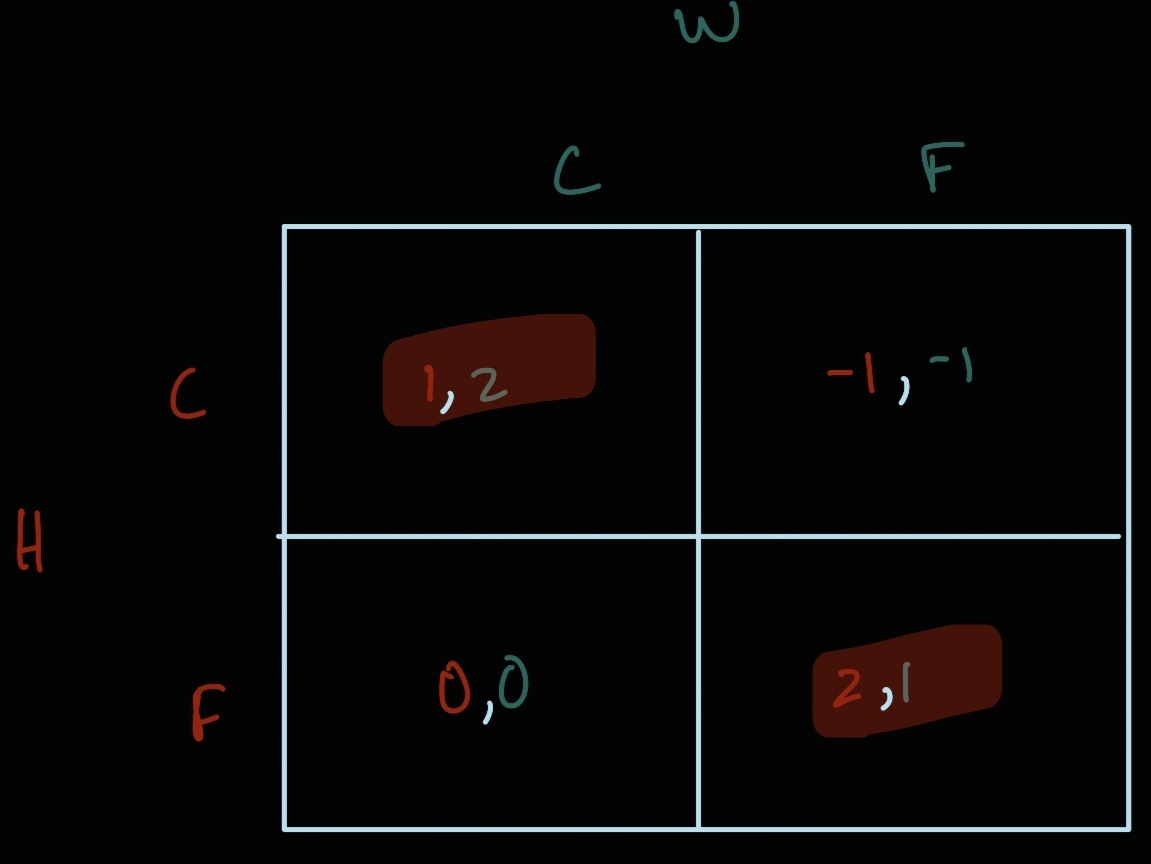 W
C F
C 1, 2 -1, -1
H
F 0, 0 2, 1